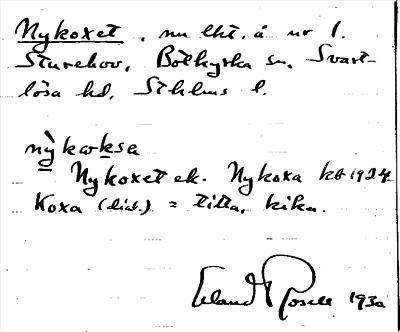 Nykoxet, nu lht. å nr 1.
Sturehov, Botkyrka sn, Svart-
lösa hd, Sthlms l.
nỳkɷksa
Nykoxet ek. Nykoxa kb 1924
Koxa (dial.) = titta, kika.
Erland Rosell 1930